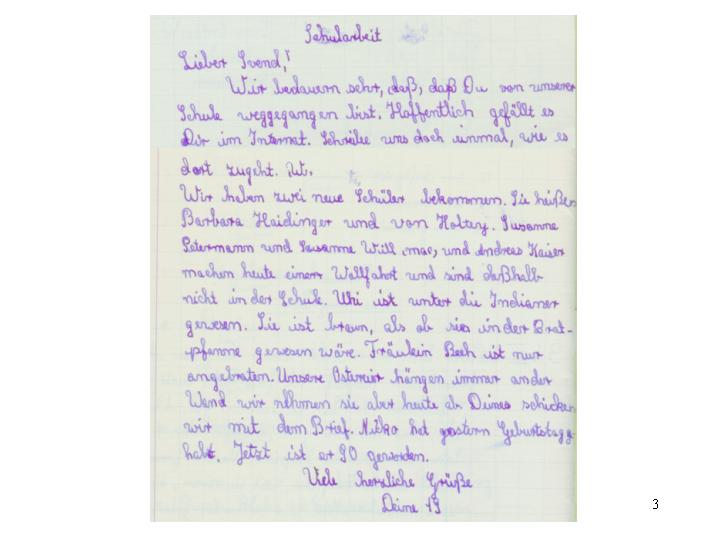 Schularbeit
Lieber Svend,
Wir bedauern sehr, daß, daß Du von unserer
Schule weggegangen bist. Hoffentlich gefällt es
Dir im Internat. Schreibe uns doch einmal, wie es
dort zugeht. W.
Wir haben zwei neue Schüler bekommen. Sie heißen
Barbara Haidinger und von Holtey. Susanne
Petermann und Susanne Will mac, und Andreas Kaiser
machen heute einen Wallfahrt und sind daßhalb
nicht in der Schule. Uhi ist unter die Indianer
gewesen. Sie ist braun, als ob sie in der Brat-
pfanne gewesen wäre. Fräulein Beeh ist nur
angebraten. Unsere Ostereier hängen immer an der
Wand wir nehmen sie aber heute ab Deines schicken
wir mit dem Brief. Nicko hat gestern Geburtstag g
habt. Jetzt ist er 90 geworden.
Viele herzliche Grüße
Deine
3